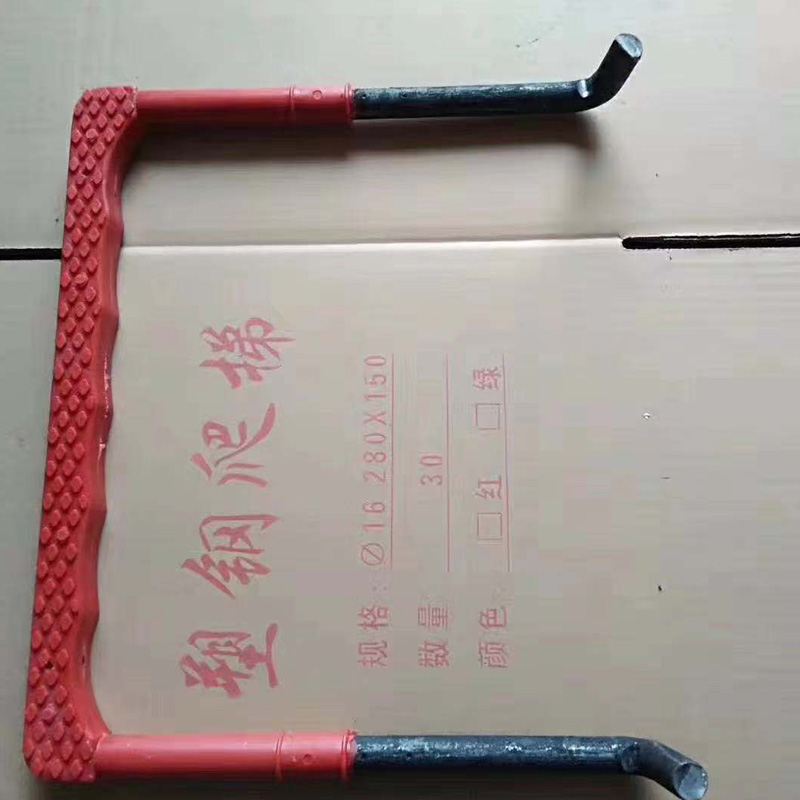 塑钢爬梯
规格:∅16 280X150
数量 30
颜色 □红 □绿